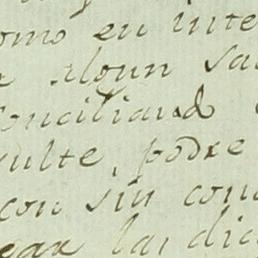 omo en inte
algun sa
conciliand
sulte, podre
con sin con
las dic